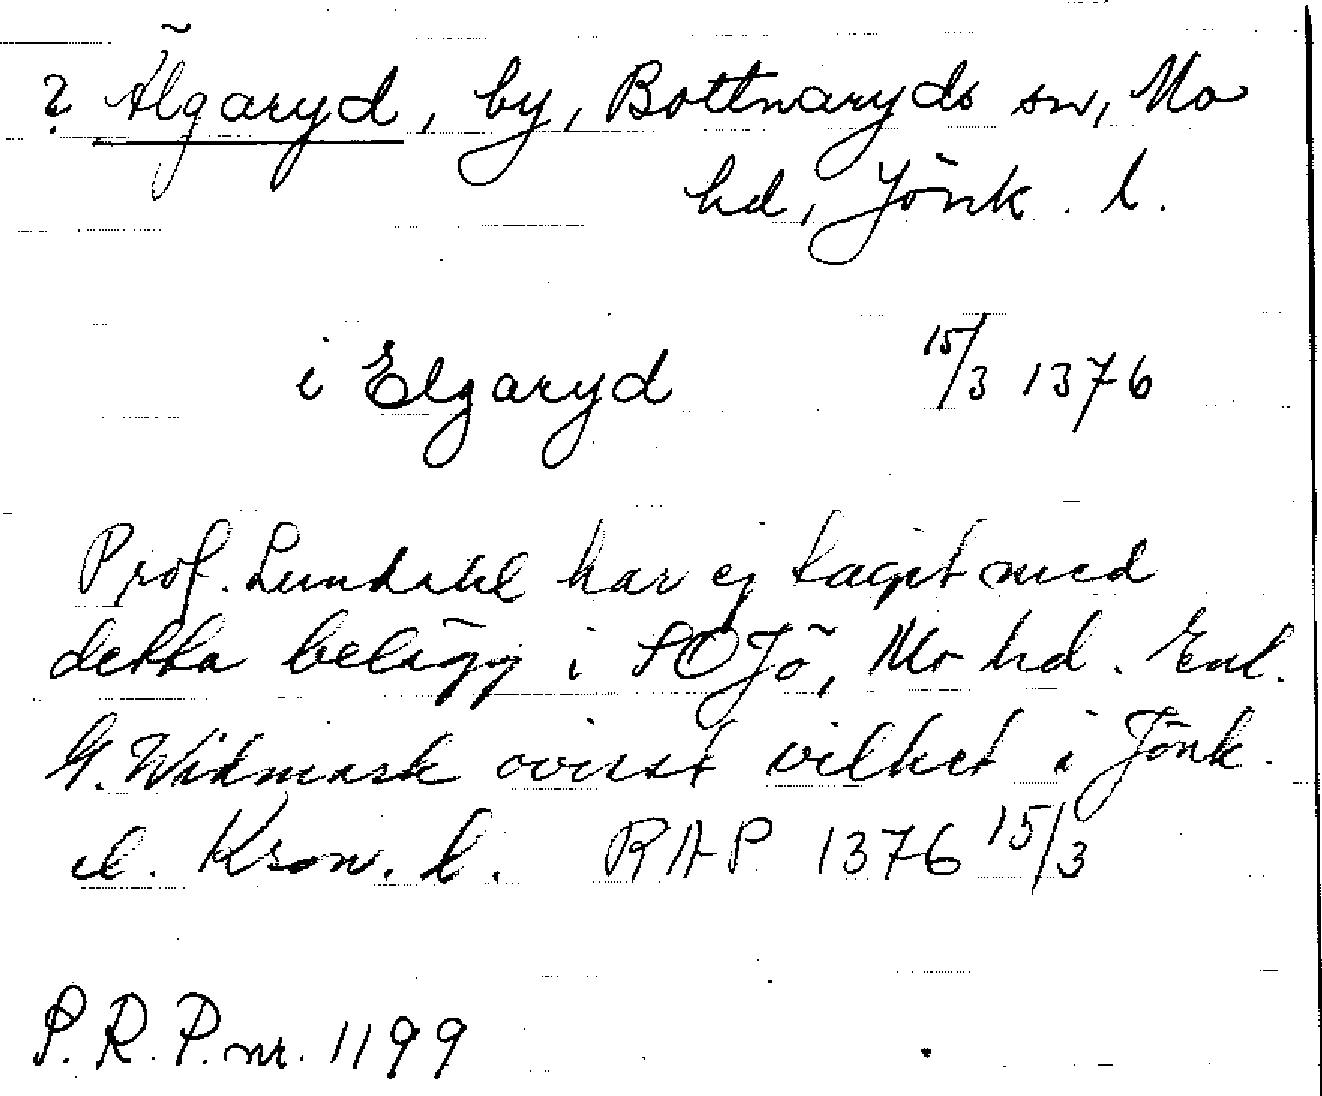 ? Älgaryd, by, Bottnaryds sn, Mo
hd, Jönk. l.
i Elgaryd 15/3 1376
Prof. Lundahl har ej tagit med
detta belägg i SOJö, Mo hd. Enl.
G. Widmark ovisst vilket i Jönk.
el. Kron. l. RAP 1376 15/3
P.R.P. nr. 1199